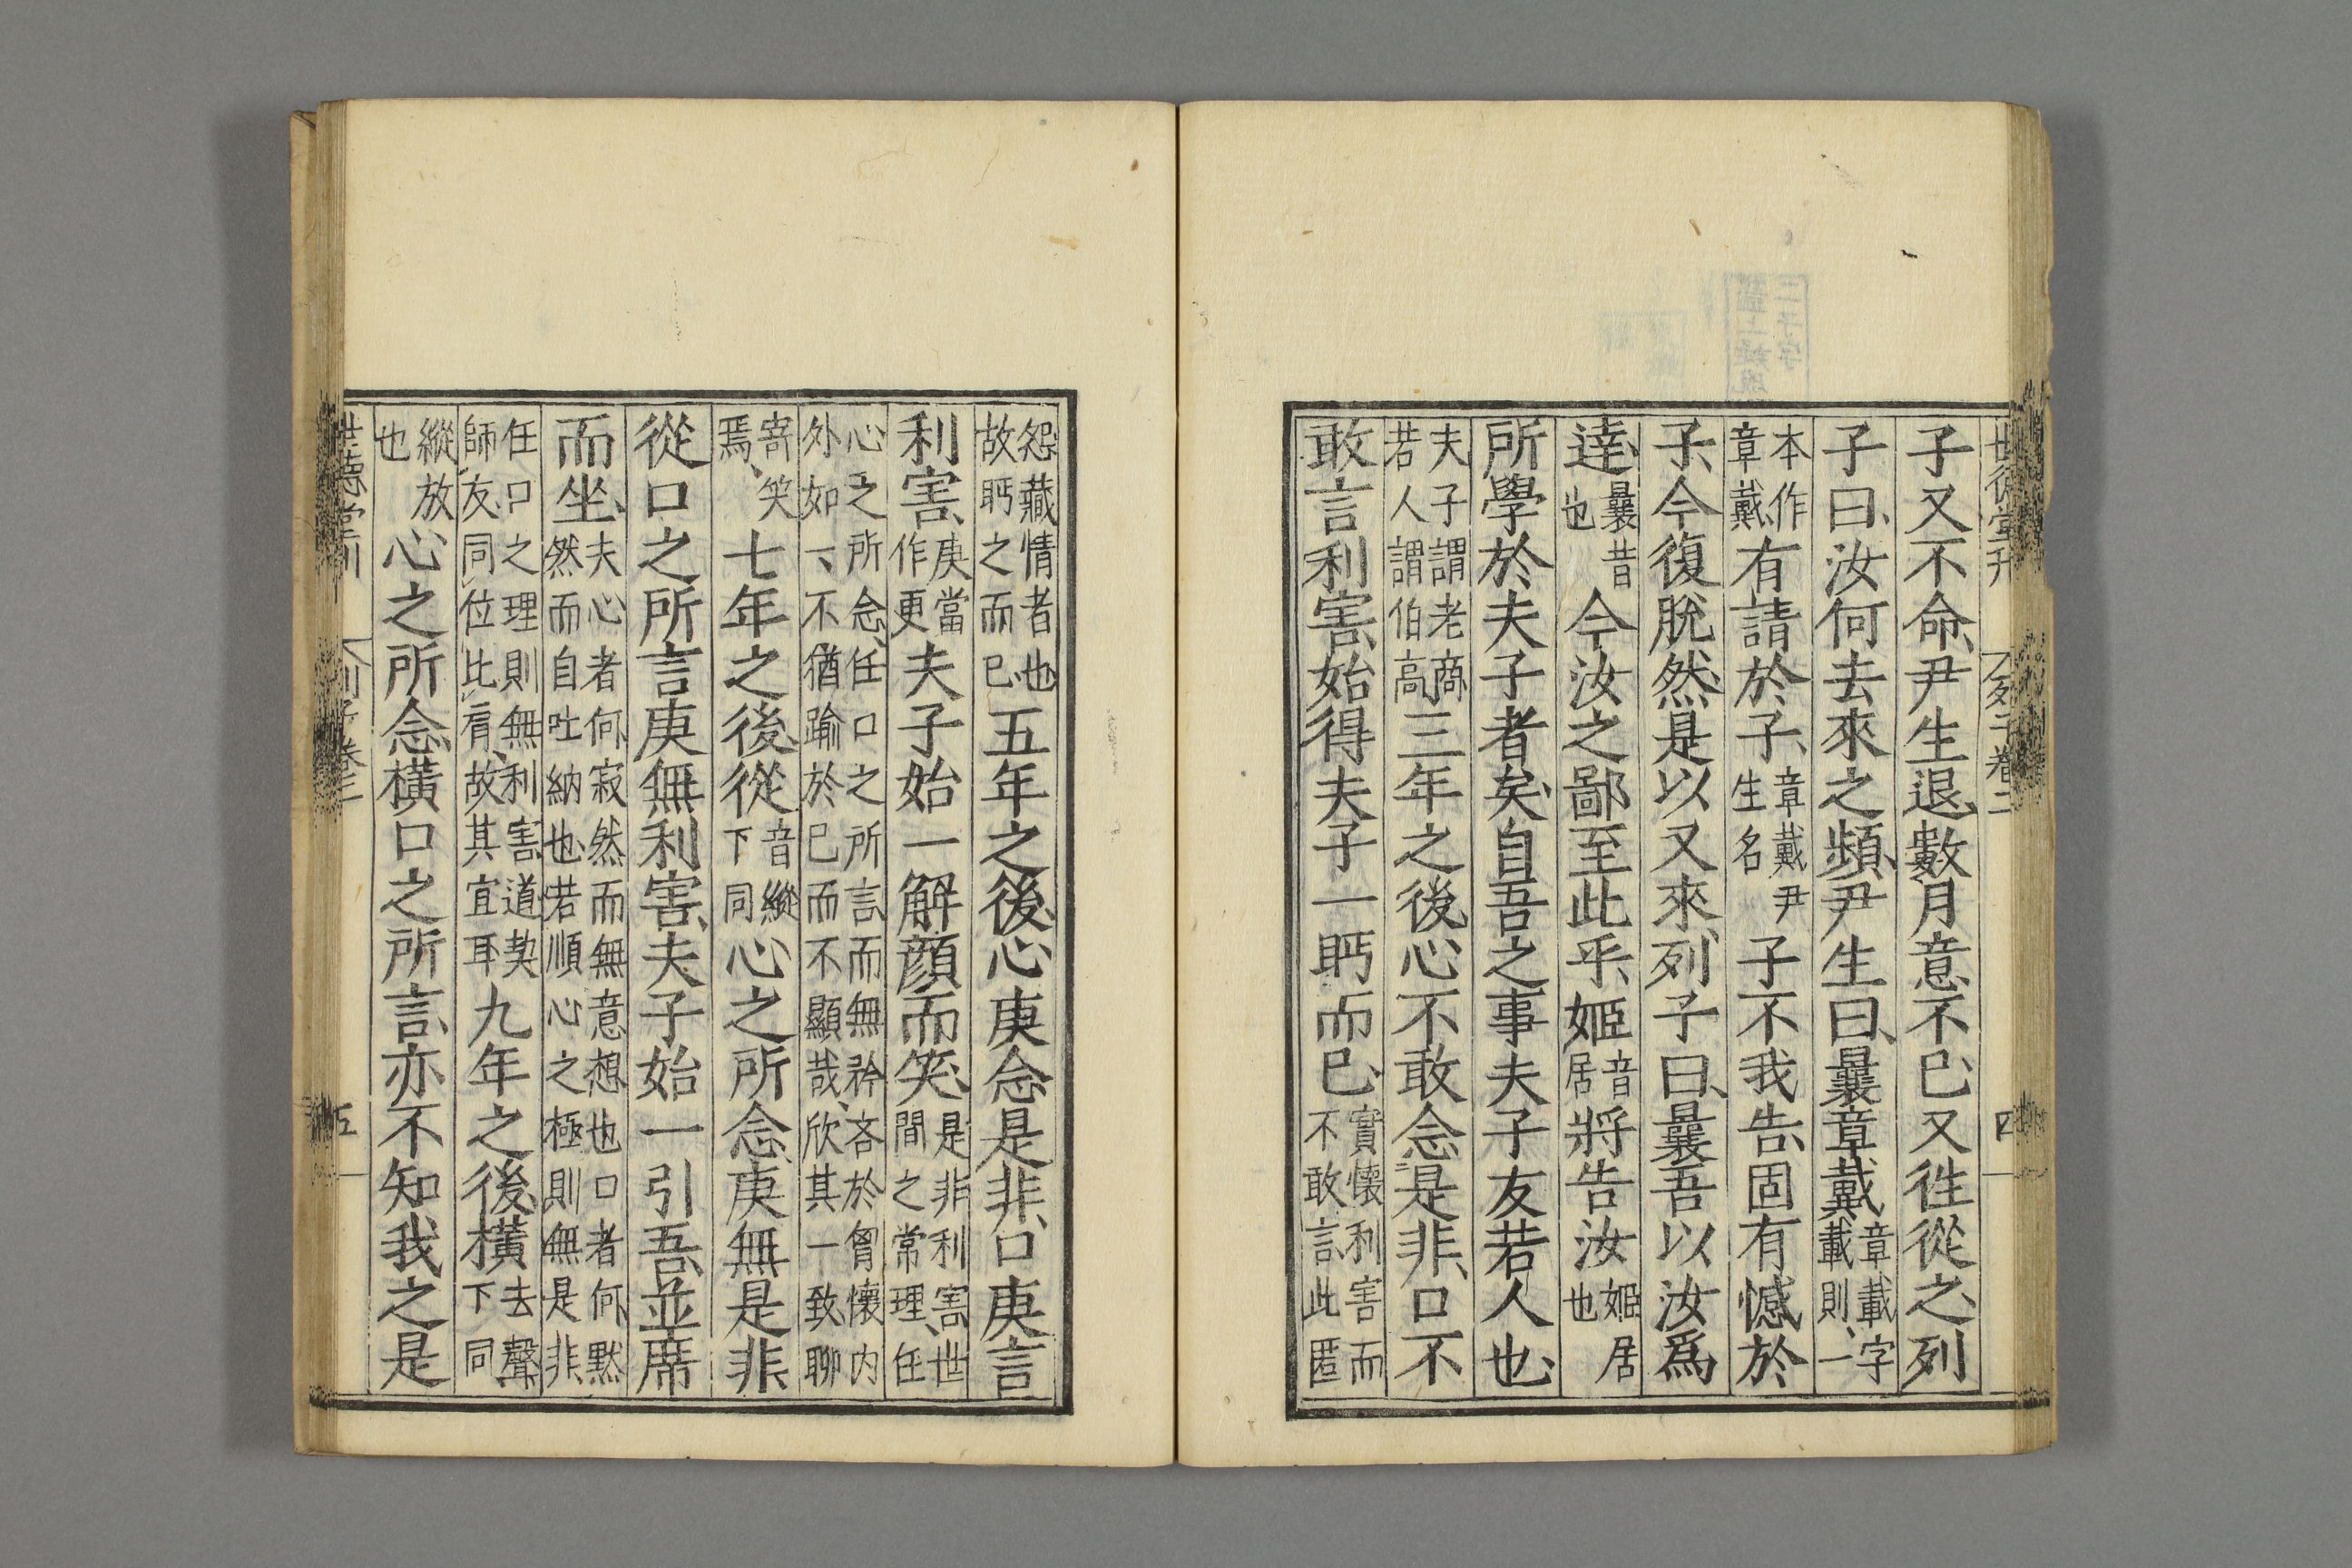 子又不命尹生退數月意不已又徃從之列
子曰汝何去來之頻尹生曰曩章戴章載字載則一
本作章戴有請於子章戴尹生名子不我告固有憾於
子今復脫然是以又來列子曰曩吾以汝爲
達曩昔也今汝之鄙至此乎姬音居將告汝姬居也
所學於夫子者矣自吾之事夫子友若人也
夫子謂老商若人謂伯高三年之後心不敢念是非口不
敢言利害始得夫子一眄而已實懷利害而不敢言此匿
怨藏情者也故眄之而已五年之後心庚念是非口庚言
利害庚當作更夫子始一解顔而笑是非利害世間之常理任
心之所念任口之所言而無矜吝於胷懷内外如一不猶踰於已而不顯哉欣其一致聊
寄笑焉七年之後從音縱下同心之所念庚無是非
從口之所言庚無利害夫子始一引吾並席
而坐夫心者何寂然而無意想也口者何默然而自吐納也若順心之極則無是非
任口之理則無利害道契師友同位比肩故其宜耳九年之後橫去聲下同
縱放也心之所念橫口之所言亦不知我之是
列子卷二
四
五